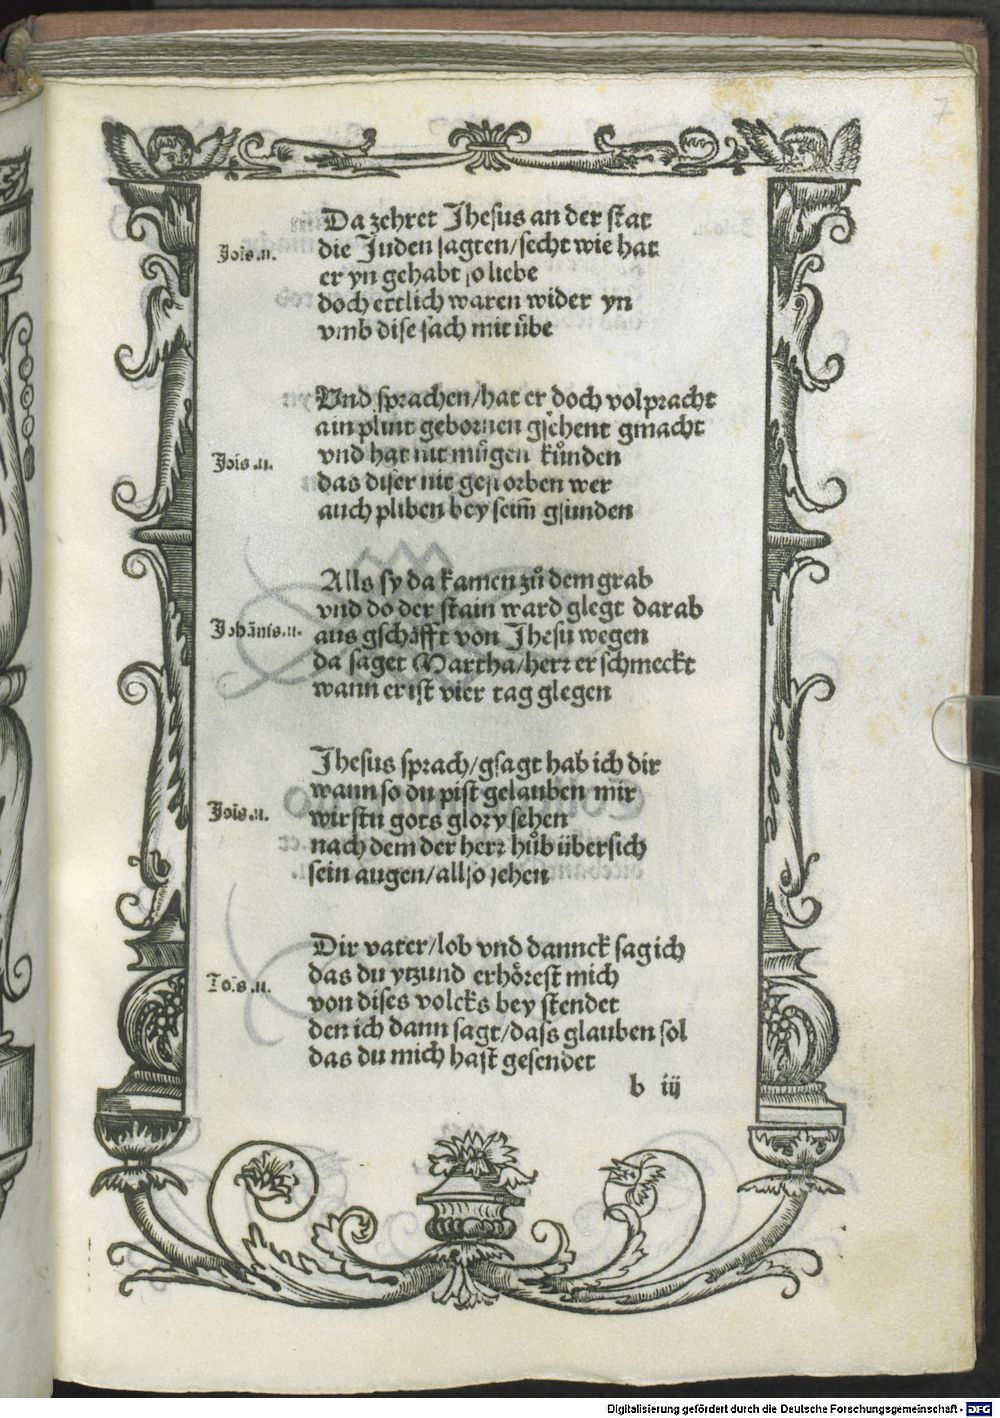 7
Da zehret Jhesus an der stat
Jois.11.
die Juden sagten/secht wie hat
er yn gehabt so liebe
doch ettlich waren wider yn
vmb dise sach mit übe
Vnd sprachen/hat er doch volpracht
ain plint gebornen gsehent gmacht
Jois.11.
vnd hat nit mügen kůnden
das diser nit gestorben wer
auch pliben bey seim̄ gsunden
Alls sy da kamen zů dem grab
vnd do der stain ward glegt darab
Johānis.11.
aus gschäfft von Jhesu wegen
da saget Martha/herr er schmeckt
wann er ist vier tag glegen
Jhesus sprach/gsagt hab ich dir
wann so du pist gelauben mir
Jois.11.
wirstu gots glory sehen
nach dem der herr hůb übersich
sein augen/allso jehen
Dir vater/lob vnd dannck sag ich
das du ytzund erhörest mich
Jois.11.
von dises volcks bey stendet
den ich dann sagt/dass glauben sol
das du mich hast gesendet
b iij
Digitalisierung gefördert durch die Deutsche Forschungsgemeinschaft - DFG